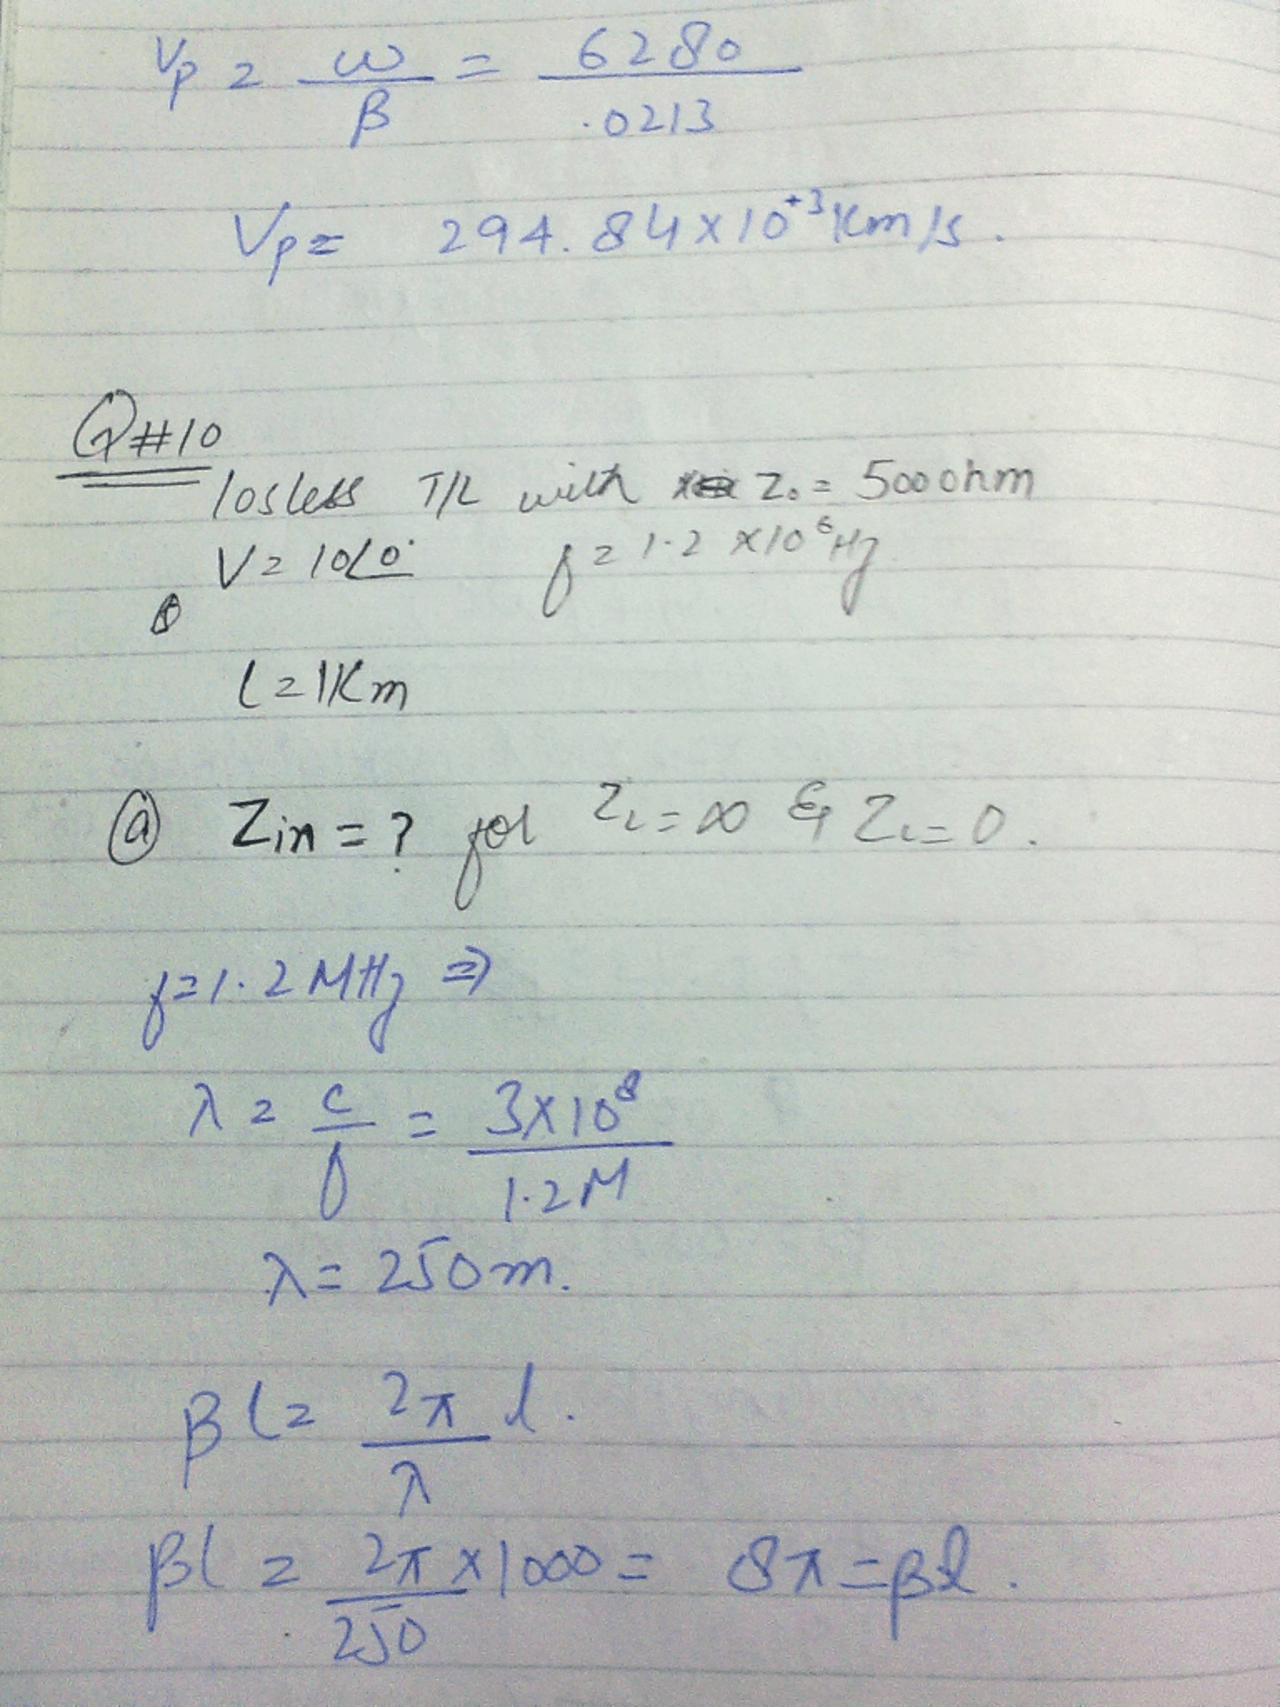 Vp = ω/β = 6280/.0213
Vp = 294.84×10⁺³ Km/s.
Q#10
losless T/L with Z₀ = 500 ohm
V = 10∠0° f = 1.2 ×10⁶ Hz
l = 1Km
ⓐ Zin = ? for Z_L = ∞ & Z_L = 0.
f = 1.2 MHz ⇒
λ = c/f = 3×10⁸/1.2M
λ = 250m.
βl = 2π/λ l.
βl = 2π/250 ×1000 = 8π = βl.